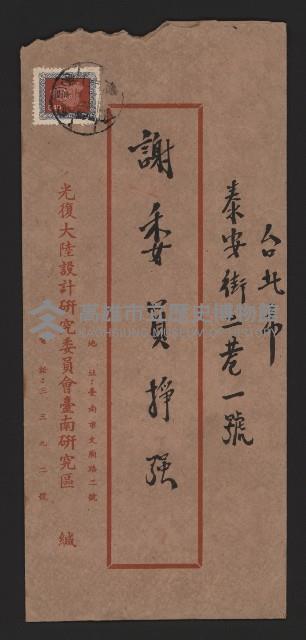 台北市
泰安街二巷一號
謝委員掙强
光復大陸設計研究委員會臺南研究區 緘
地 址：臺南市文廟路二號
話：三三九二號
高雄市立歷史博物館
KAOHSIUNG MUSEUM OF HISTORY